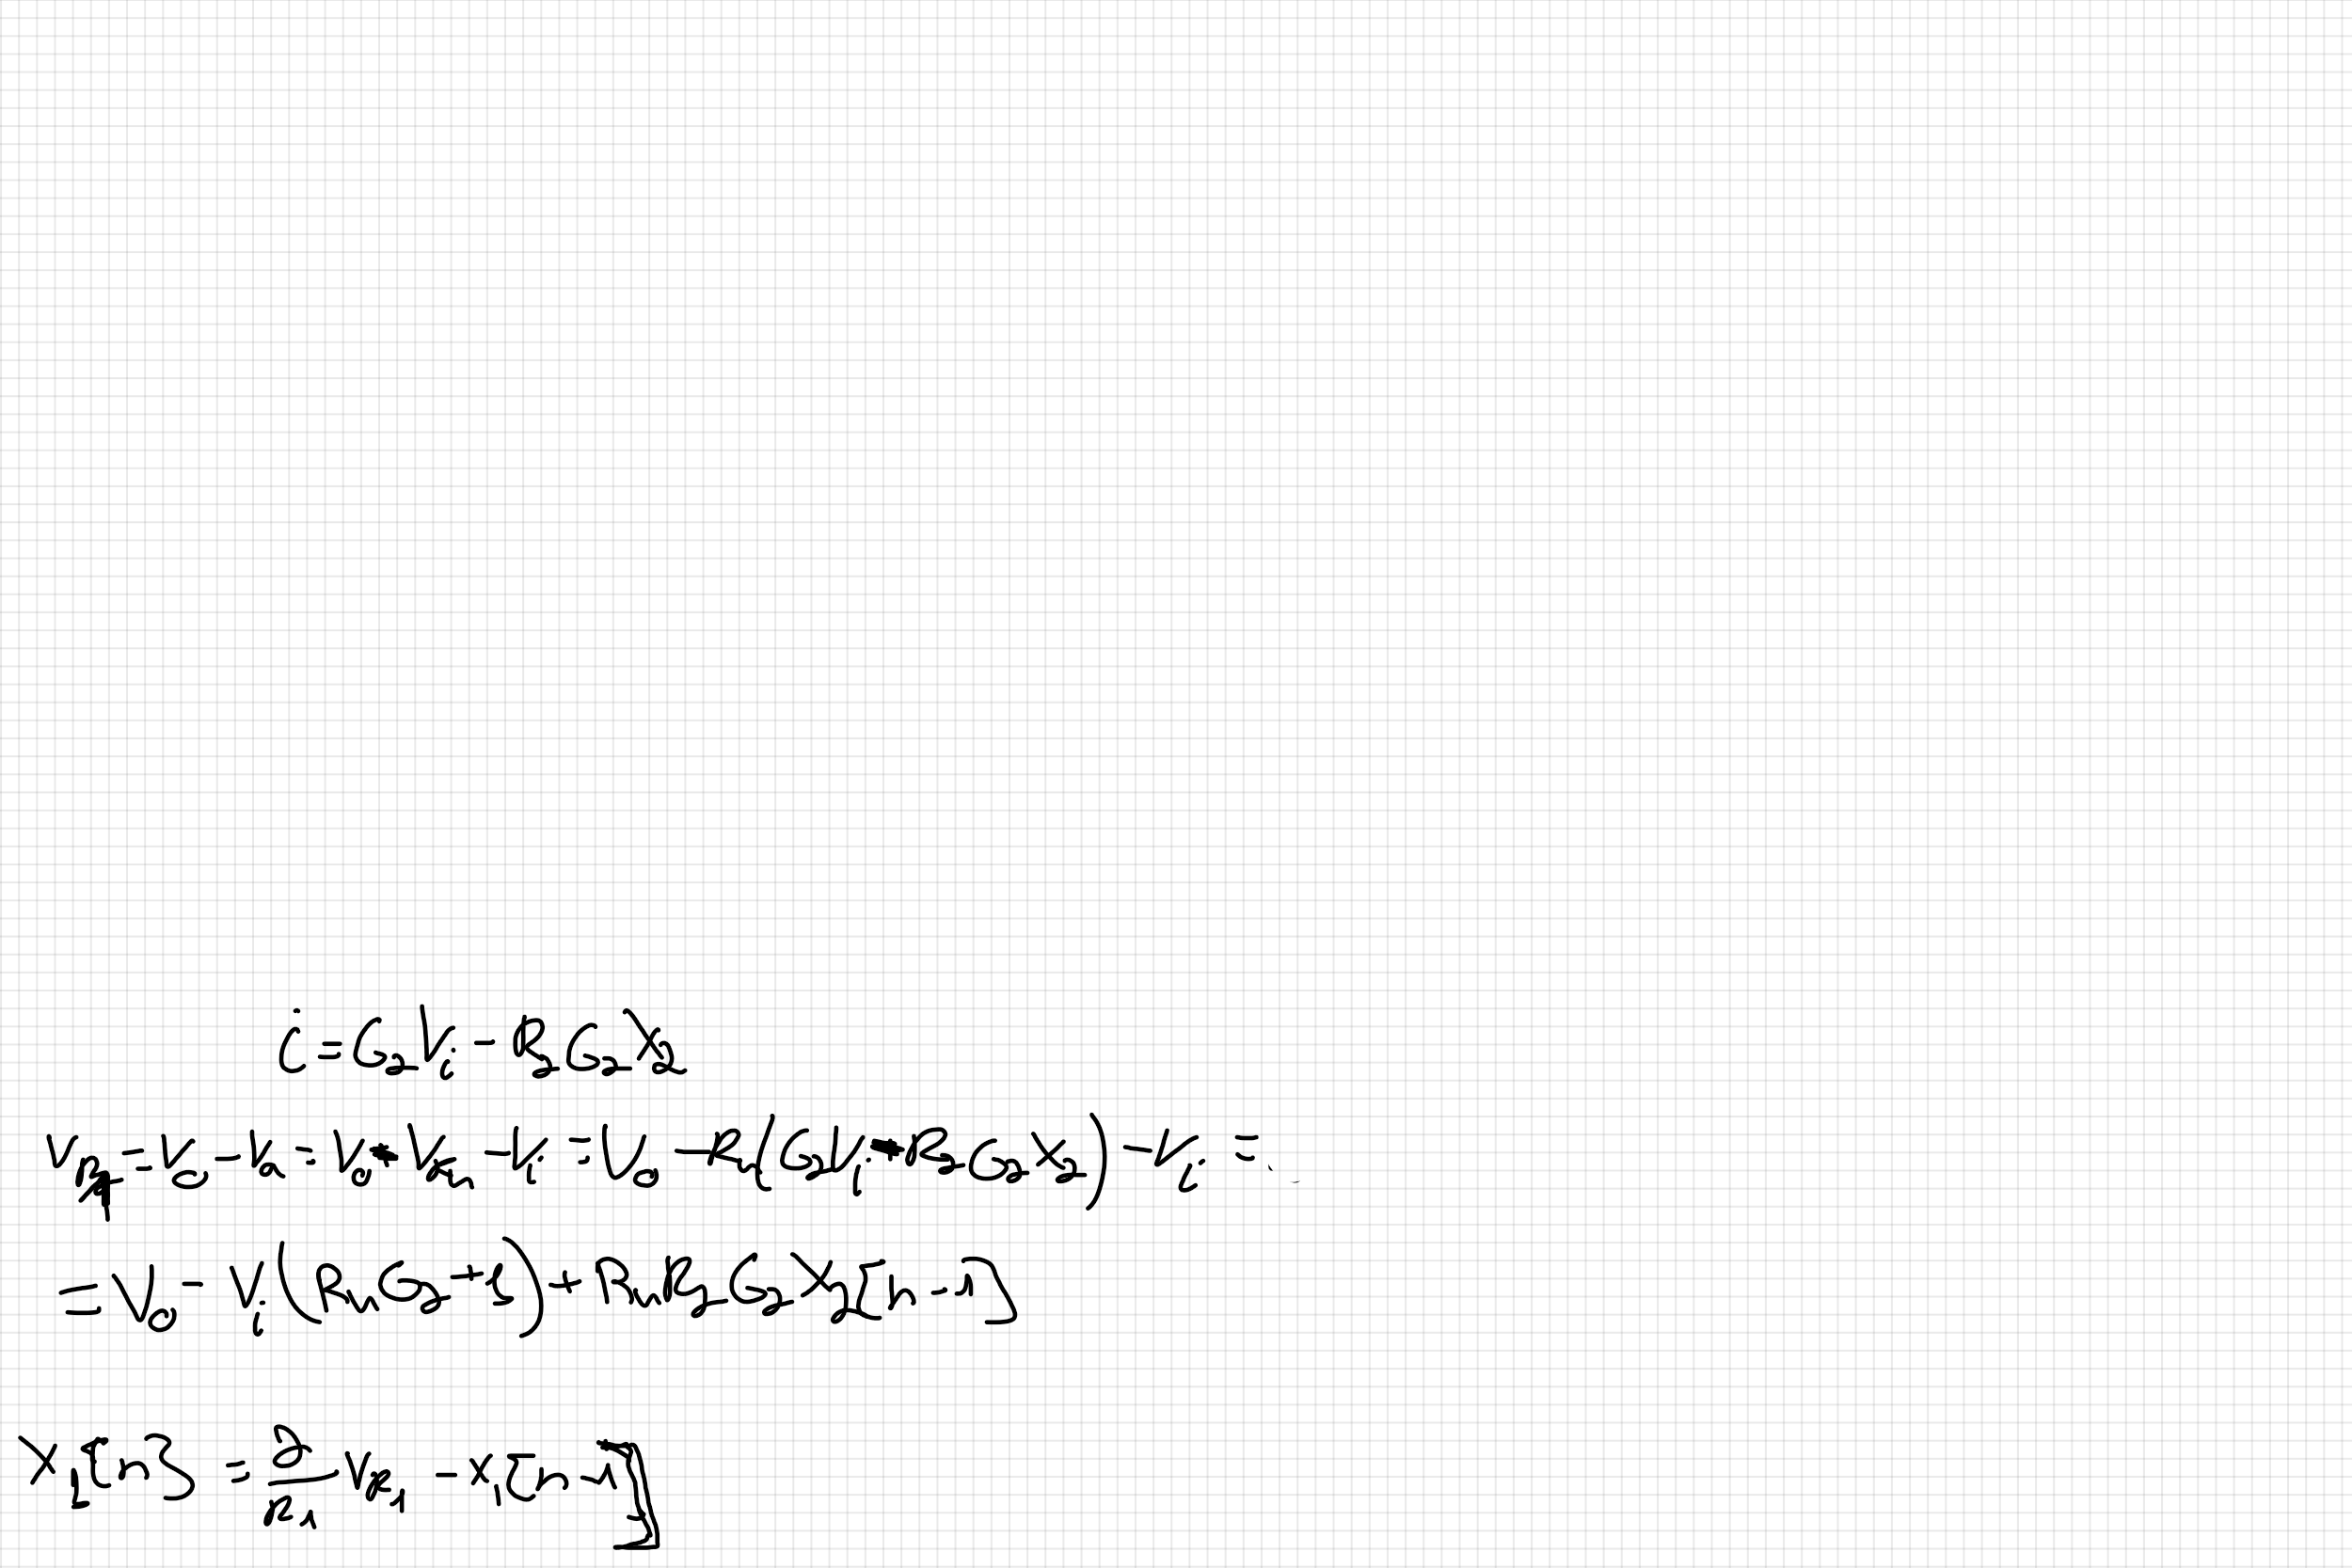 i = G₂Vᵢ - R₂G₂X₂
V_R₁ = V₀ - Vₐ = V₀ - V_Rₙ - Vᵢ = V₀ - Rₙ(G₂Vᵢ - R₂G₂X₂) - Vᵢ =
= V₀ - Vᵢ(RₙG₂ + 1) + RₙR₂G₂X₂[n-1]
X₁[n] = 2/R₁ V_R₁ - X₁[n-1]